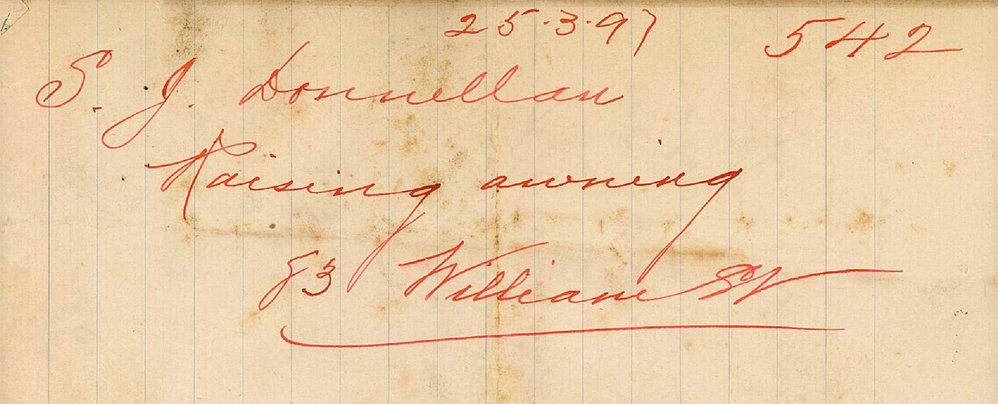 25.3.97 542
S. J. Donnellan
Raising awning
83 William St